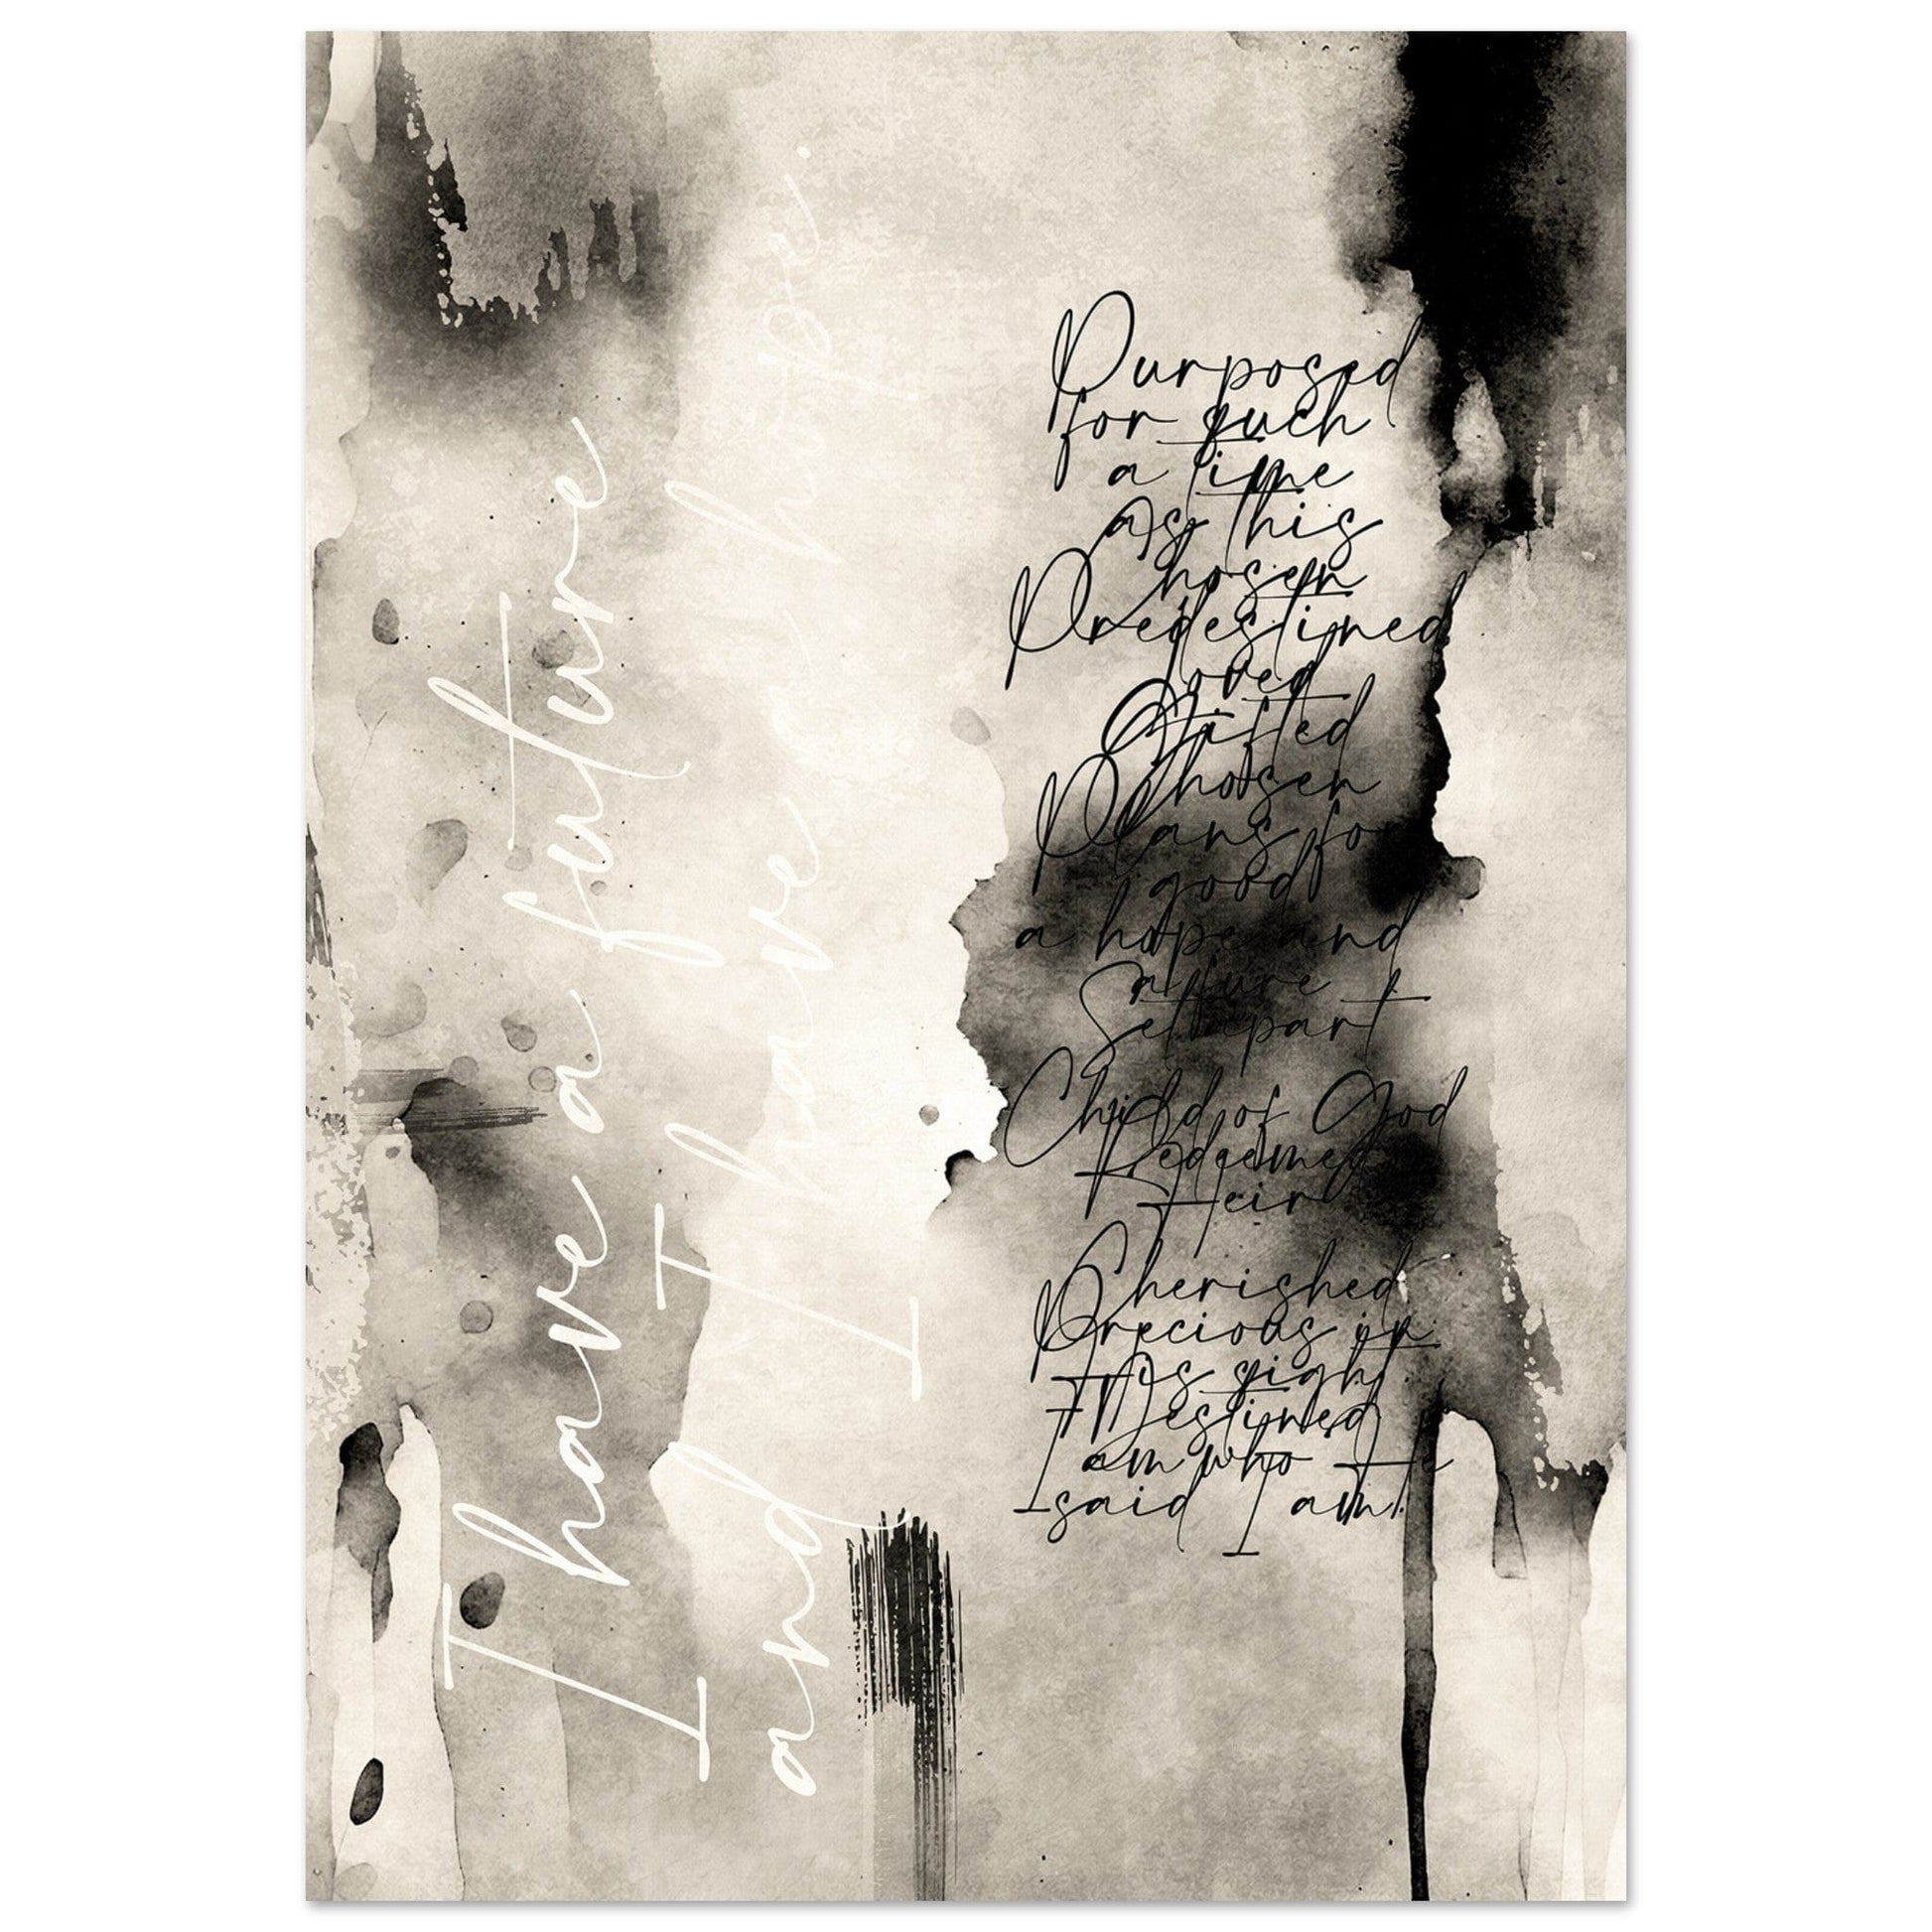 I have a future
and I have a hope.
Purposed
for such
a time
as this
Chosen
Predestined
loved
Gifted
Chosen
Plans for
good
a hope and
a future
Set apart
Child of God
Redeemed
Heir
Cherished
Precious in
His sight
Destined
I am who He
said I am!